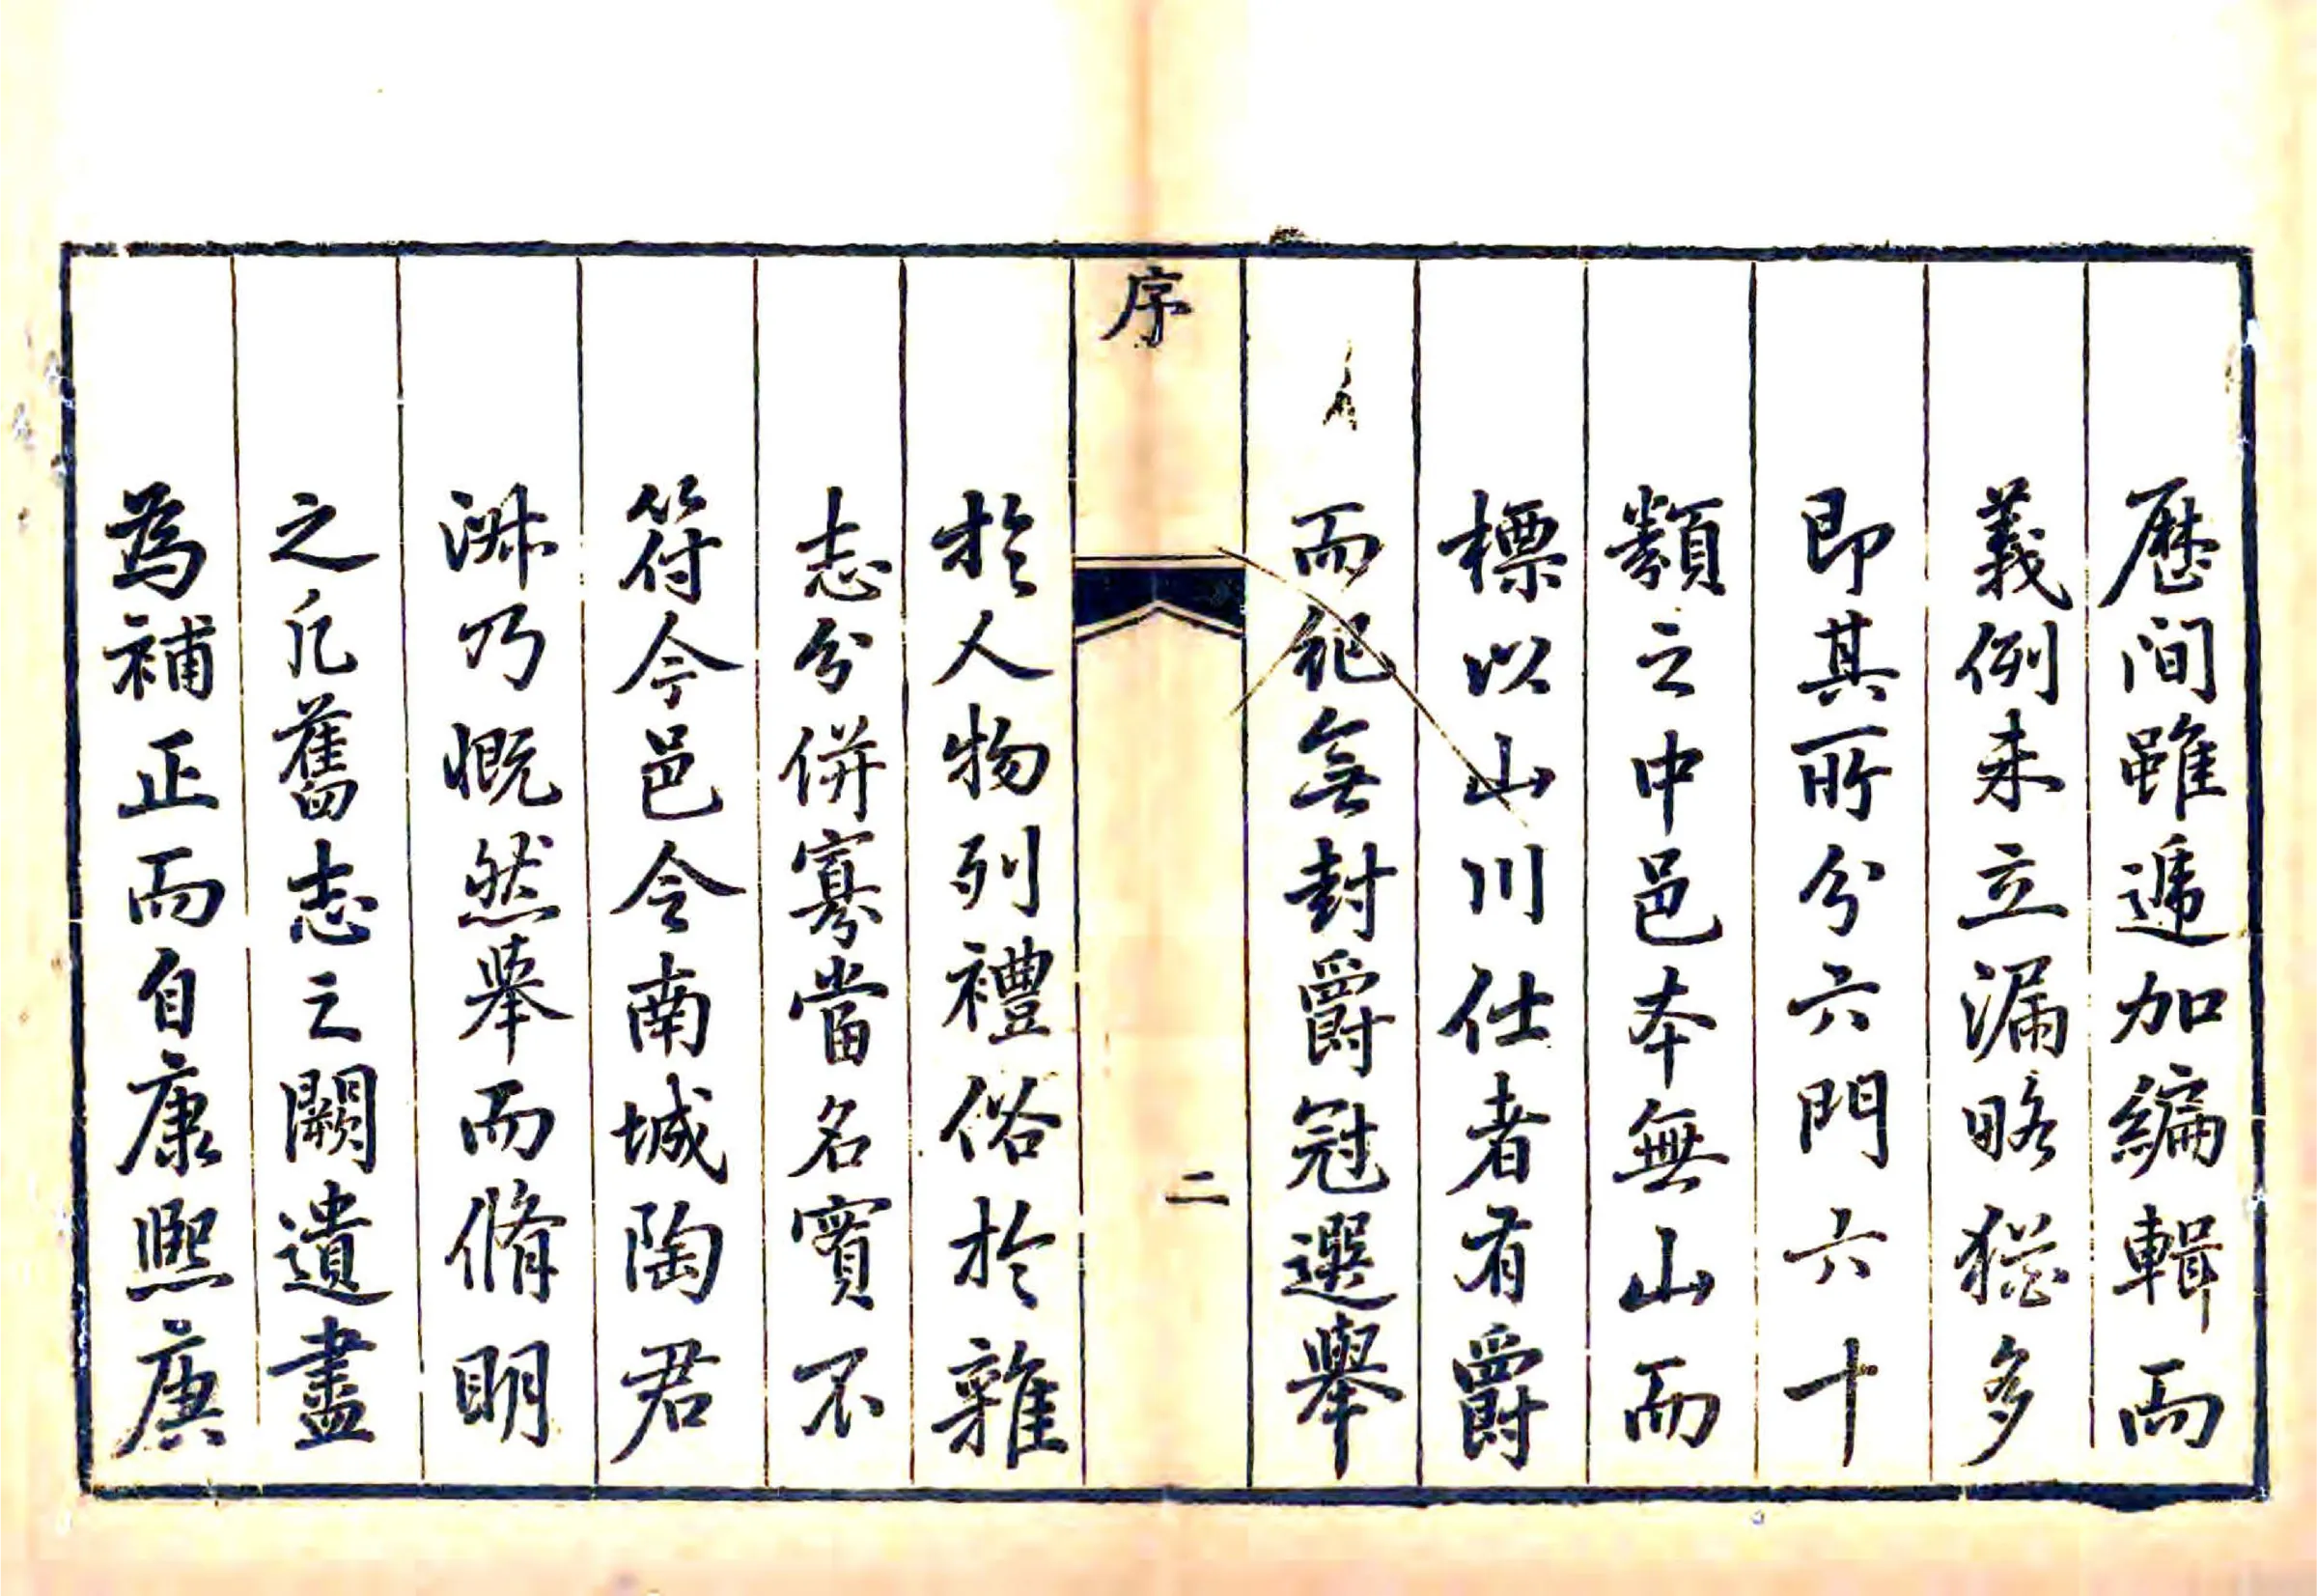 歷間雖遞加編輯而
義例未立漏略猶多
即其所分六門六十
類之中邑本無山而
標以山川仕者有爵
而祀無封爵冠選舉
序
二
於人物列禮俗於雜
志分併寡當名實不
符今邑令南城陶君
淋乃慨然舉而脩明
之凡舊志之闕遺盡
為補正而自康熙庚